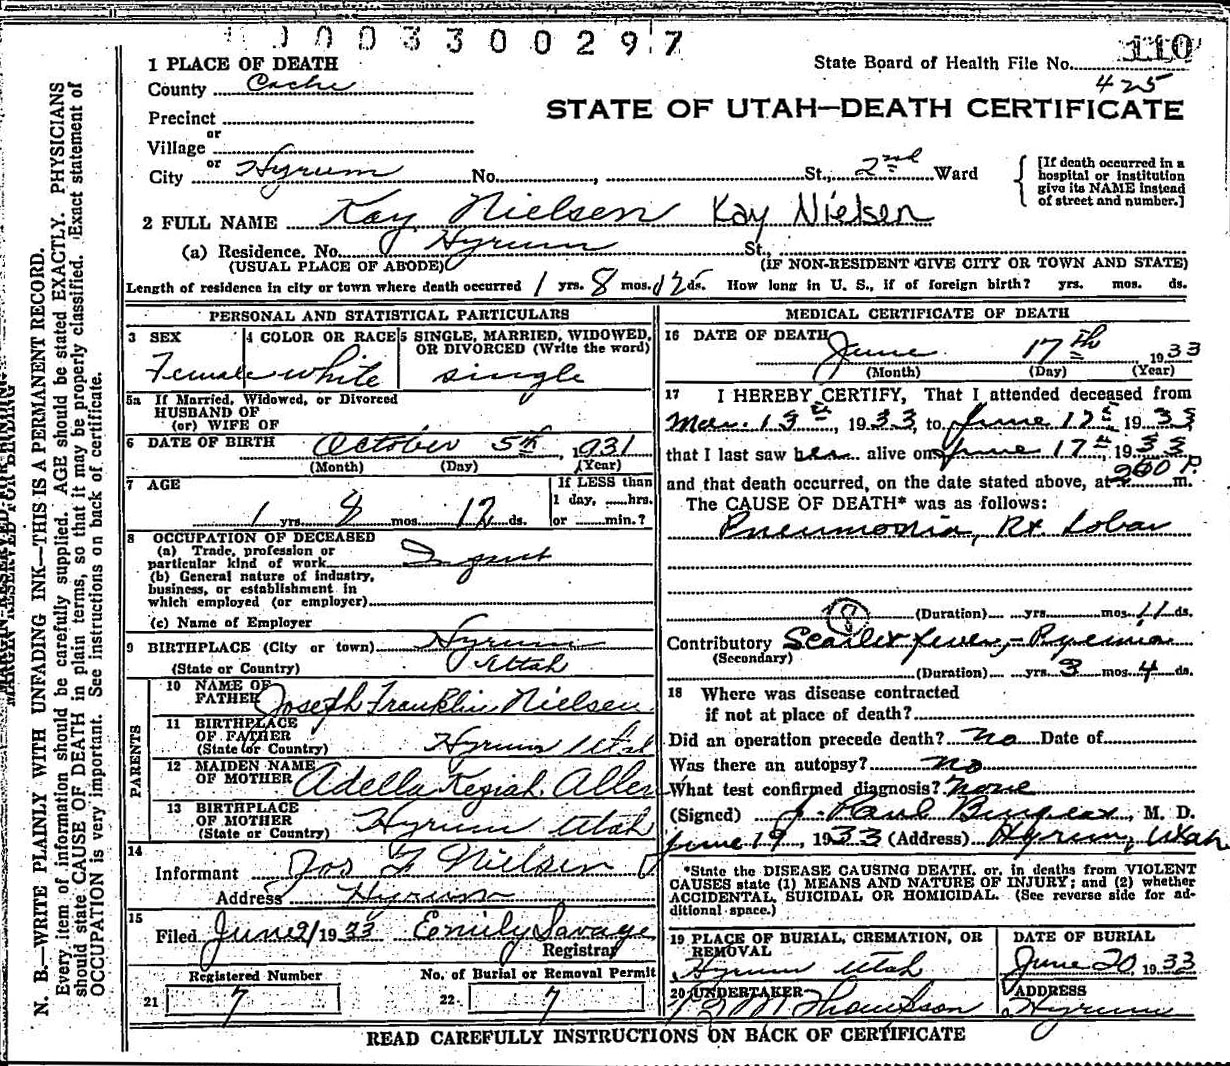 0003300297
110
1 PLACE OF DEATH
State Board of Health File No.
County Cache
425
STATE OF UTAH—DEATH CERTIFICATE
Precinct
or
Village
or
City Hyrum No. , St., 2nd Ward
[If death occurred in a
hospital or institution
give its NAME instead
of street and number.]
2 FULL NAME Kay Nielsen Kay Nielsen
(a) Residence. No. Hyrum St.,
(USUAL PLACE OF ABODE) (IF NON-RESIDENT GIVE CITY OR TOWN AND STATE)
Length of residence in city or town where death occurred 1 yrs. 8 mos. 12 ds. How long in U. S., if of foreign birth? yrs. mos. ds.
PERSONAL AND STATISTICAL PARTICULARS
3 SEX 4 COLOR OR RACE 5 SINGLE, MARRIED, WIDOWED,
OR DIVORCED (Write the word)
Female white single
5a If Married, Widowed, or Divorced
HUSBAND OF
(or) WIFE OF
6 DATE OF BIRTH October 5th, 1931
(Month) (Day) (Year)
7 AGE
If LESS than
1 day, ......hrs.
1 yrs. 8 mos. 12 ds. or ......min.?
8 OCCUPATION OF DECEASED
(a) Trade, profession or
particular kind of work Infant
(b) General nature of industry,
business, or establishment in
which employed (or employer)
(c) Name of Employer
9 BIRTHPLACE (City or town) Hyrum
(State or Country) Utah
PARENTS
10 NAME OF
FATHER Joseph Franklin Nielsen
11 BIRTHPLACE
OF FATHER
(State or Country) Hyrum Utah
12 MAIDEN NAME
OF MOTHER Adella Keziah Allen
13 BIRTHPLACE
OF MOTHER
(State or Country) Hyrum Utah
14
Informant Jos F Nielsen
Address Hyrum
15
Filed June 21 1933 Emily Savage
Registrar
Registered Number No. of Burial or Removal Permit
21 7 22 7
MEDICAL CERTIFICATE OF DEATH
16 DATE OF DEATH June 17th, 1933
(Month) (Day) (Year)
17 I HEREBY CERTIFY, That I attended deceased from
Mar. 13th, 1933, to June 17th 1933
that I last saw her alive on June 17th, 1933
and that death occurred, on the date stated above, at 200 P. m.
The CAUSE OF DEATH* was as follows:
Pneumonia, Rt. Lobar
8
(Duration) yrs. mos. 11 ds.
Contributory Scarlet fever,- Pyemia
(Secondary)
(Duration) yrs. 3 mos. 4 ds.
18 Where was disease contracted
if not at place of death?
Did an operation precede death? no Date of
Was there an autopsy? no
What test confirmed diagnosis? none
(Signed) J. Paul , M. D.
June 19, 1933 (Address) Hyrum, Utah
*State the DISEASE CAUSING DEATH, or, in deaths from VIOLENT
CAUSES state (1) MEANS AND NATURE OF INJURY; and (2) whether
ACCIDENTAL, SUICIDAL OR HOMICIDAL. (See reverse side for ad-
ditional space.)
19 PLACE OF BURIAL, CREMATION, OR
REMOVAL
Hyrum Utah
DATE OF BURIAL
June 20 1933
20 UNDERTAKER
Thompson
ADDRESS
Hyrum
READ CAREFULLY INSTRUCTIONS ON BACK OF CERTIFICATE
MARGIN RESERVED FOR BINDING
N. B.—WRITE PLAINLY WITH UNFADING INK—THIS IS A PERMANENT RECORD.
Every item of information should be carefully supplied. AGE should be stated EXACTLY. PHYSICIANS
should state CAUSE OF DEATH in plain terms, so that it may be properly classified. Exact statement of
OCCUPATION is very important. See instructions on back of certificate.